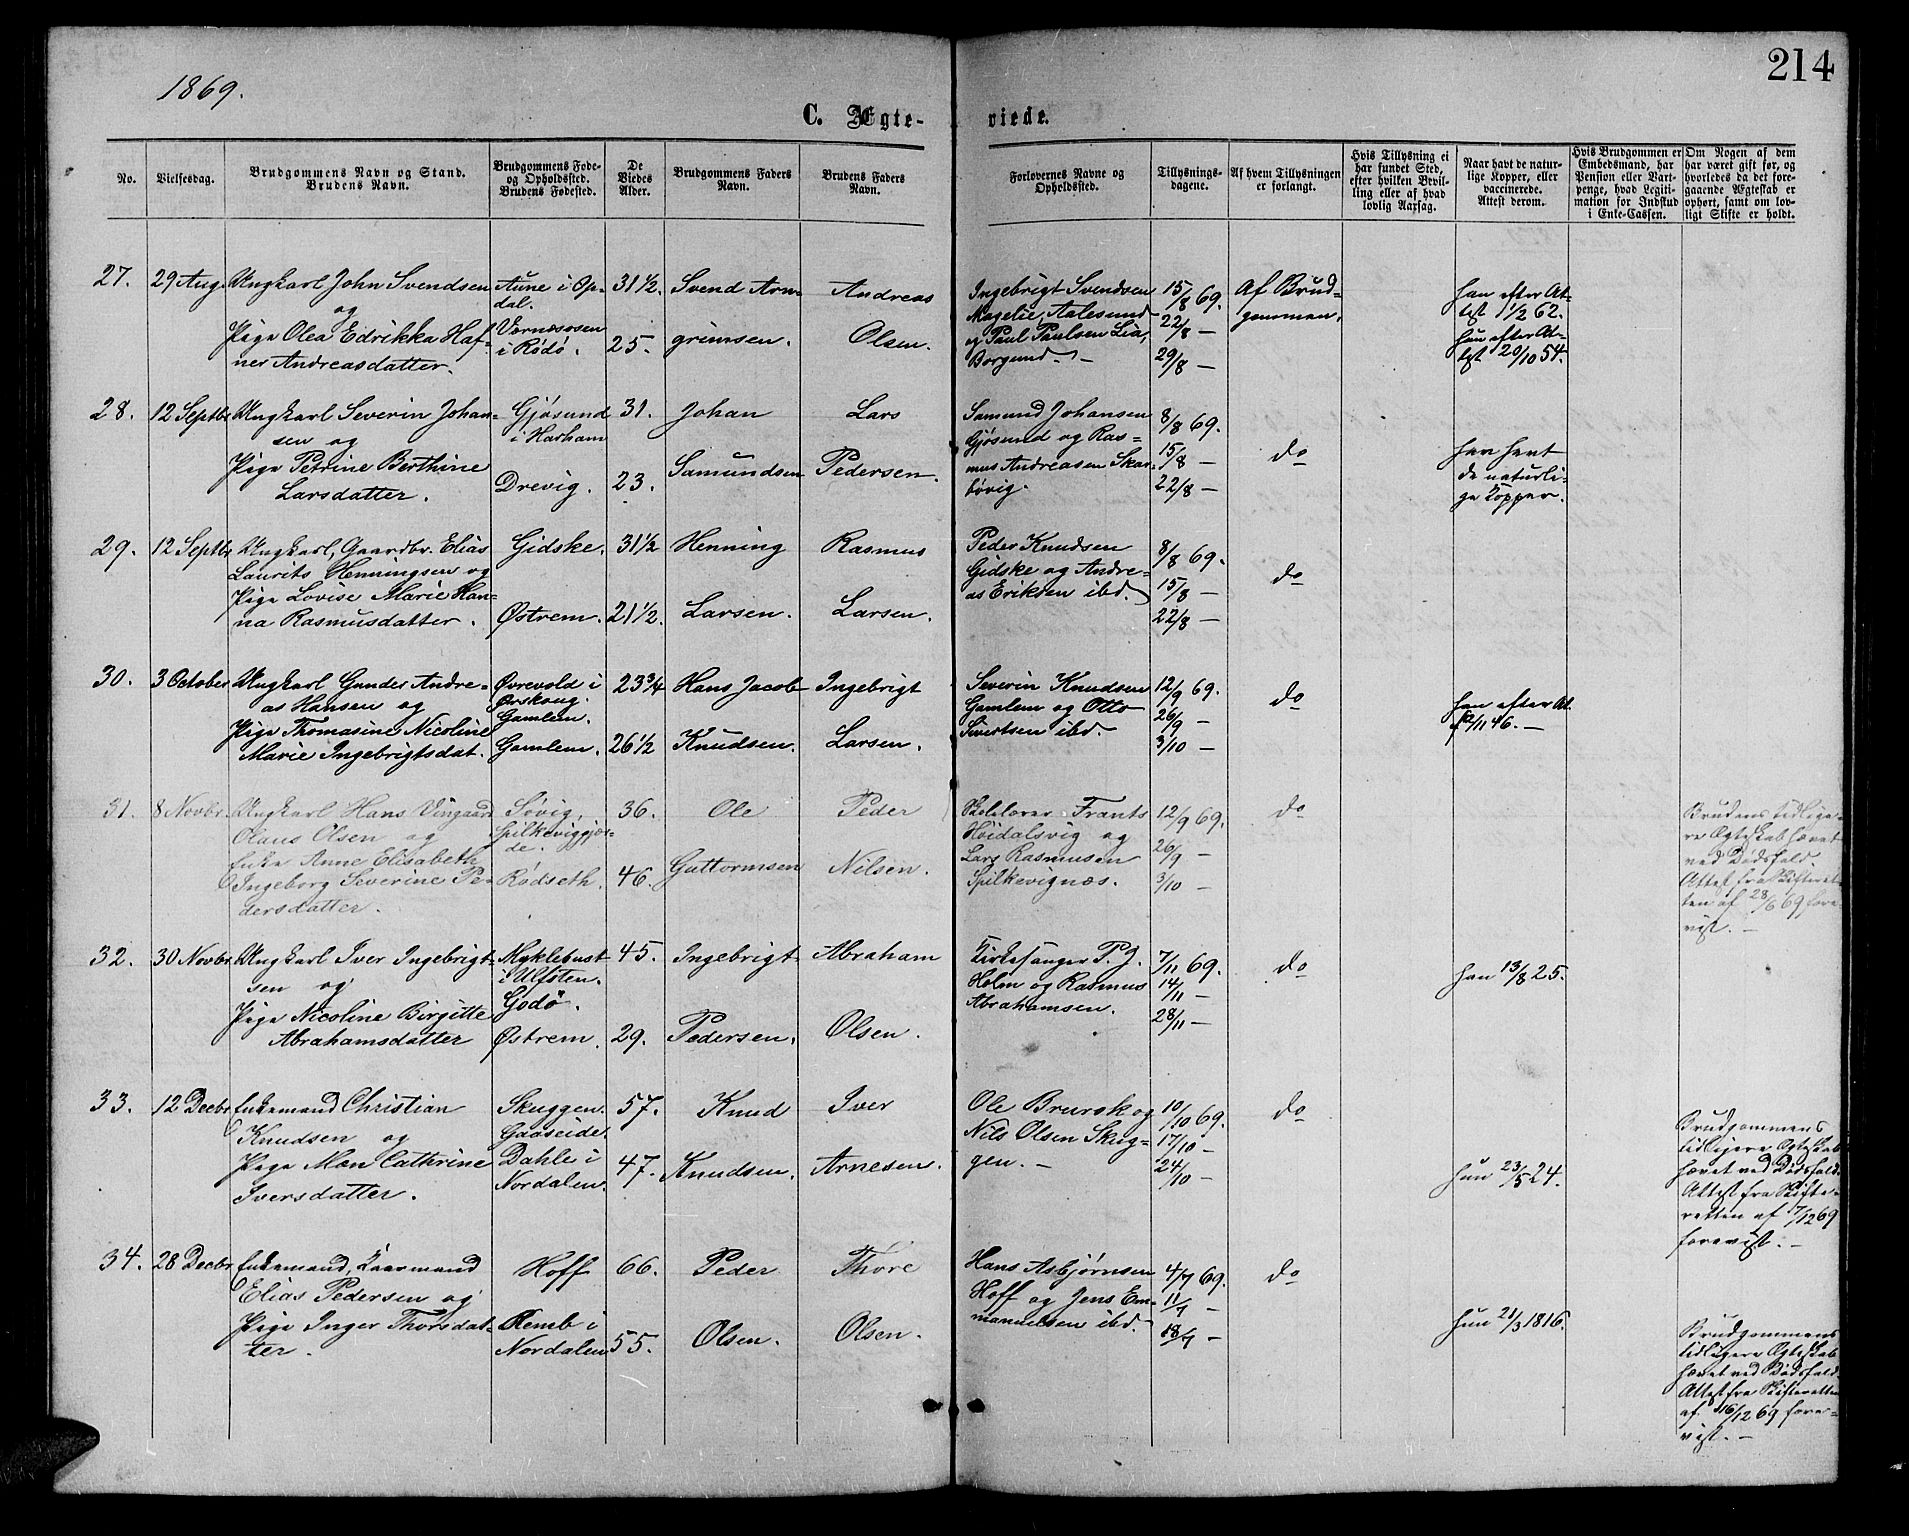 214
1869.
C. Ægte- viede.
No. Vielsesdag. Brudgommens Navn og Stand. Brudens Navn. Brudgommens Føde- og Opholdssted. Brudens Fødested. De Viedes Alder. Brudgommens Faders Navn. Brudens Faders Navn. Forlovernes Navne og Opholdssted. Tillysnings-dagene. Af hvem Tillysningen er forlangt. Hvis Tillysning ei har fundet Sted, efter hvilken Bevilling eller af hvad lovlig Aarsag. Naar havt de naturlige Kopper, eller vaccinerede. Attest derom. Hvis Brudgommen er Embedsmand, har Pension eller Vartpenge, hvad Legitimation for Indskud i Enke-Cassen. Om Nogen af dem har været gift før, og hvorledes da det foregaaende Ægteskab er ophørt, samt om lovligt Skifte er holdt.
27. 29 Aug. Ungkarl John Svendsen Aune i Op- 31 1/2. Svend Arn- Andreas Ingebrigt Svendsen 15/8 69. Af Brud- han efter At-
og dal. Magelie, Aalesund 22/8 — gommen. test 1/2 62.
Pige Olea Edrikka Haf- Værnæsosen 25. grimsen. Olsen. og Paul Paulsen Lia, hun efter At-
ner Andreasdatter. i Rødø. Borgund. — 29/8 — test 20/10 54.
28. 12 Septbr Ungkarl Severin Johan- Gjøsund 31. Johan Lars Samund Johansen 8/8 69.
sen og i Harham Gjøsund og Ras- 15/8 — do han havt
Pige Petrine Berthine Samundsen Pedersen. mus Andreasen Skar- de naturli-
Larsdatter. Drevig. 23. bøvig. 22/8 — ge Kopper.
29. 12 Septbr Ungkarl, Gaardbr. Elias Gidske. 31 1/2 Henning Rasmus Peder Knudsen 8/8 69.
Laurits Henningsen og Gidske og Andre- 15/8 — do
Pige Lovise Marie Han- as Eriksen ibd.
na Rasmusdatter. Østrem. 21 1/2. Larsen. Larsen. 22/8 —
30. 3 October Ungkarl Gunder Andre- Øvrevold i 23 3/4 Hans Jacob Ingebrigt Severin Knudsen 12/9 69. do han efter At.
as Hansen og Ørskoug. Gamlem og Otto 26/9 — 11 46. —
Pige Thomasine Nicoline Gamlem. Sivertsen ibd. 3/10 —
Marie Ingebrigtsdat. Gamlem. 26 1/2 Knudsen. Larsen.
31. 8 Novbr. Ungkarl Hans Vingaard Søvig, 36. Ole Peder Skolelærer Frants 12/9 69. do Brudens tidlige-
Olaus Olsen og Spilkeviggjær- Høidalsvig og 26/9 — re Ægteskab hævet
Enke Anne Elisabeth de. Lars Rasmusen ved Dødsfald.
Ingeborg Severine Pe- Rødseth. 46. Guttormsen Nilsen. Spilkevignæs. 3/10 — Attest fra Skifteret-
dersdatter. ten af 28/6 69 fore-
vist. —
32. 30 Novbr. Ungkarl Iver Ingebrigt- Myklebust 45. Ingebrigt Abraham Kirkesanger P. J. 7/11 69. do han 13/8 25.
sen og i Ulfsten. Holm og Rasmus 14/11 —
Pige Nicoline Birgitte Godø. Abrahamsen. 28/11 —
Abrahamsdatter Østrem. 29. Pedersen. Olsen.
33. 12 Decbr Enkemand Christian Skuggen. 57. Knud Iver Ole Brursk og 10/10 69. do Brudgommens
Knudsen og Gaaseide. Nils Olsen Skug- 17/10 — tidligere Ægteskab
Pige Mæn Cathrine Dahle i 47. Knudsen. Arnesen. gen. — 24/10 — hun 23/5 24. hævet ved Dødsfald.
Iversdatter. Nordalen. Attest fra Skifte-
retten af 7/12 69
forevist. —
34. 28 Decbr Enkemand, Kaarmand Hoff 66. Peder Thore Hans Asbjørnsen 4/7 69. do
Elias Pedersen og Hoff og Jens Em- 11/7 —
Pige Inger Thorsdat- Remb i manuelsen ibd. 18/7 — hun 21/3 1816. Brudgommens
ter. Nordalen 55. Olsen. Olsen. tidligere Ægteskab
hævet ved Dødsfald.
Attest fra Skifteretten
af 16/12 69 fore-
vist. —